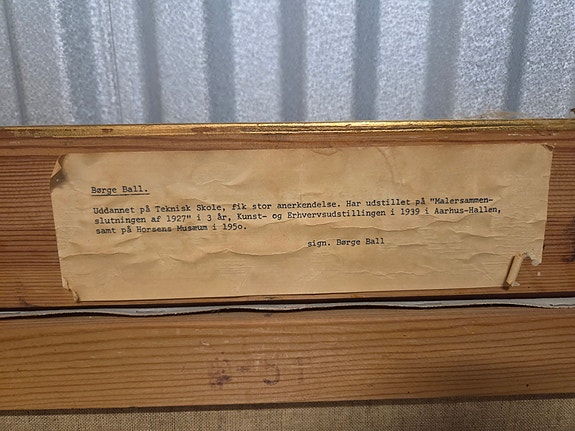 Børge Ball.
Uddannet på Teknisk Skole, fik stor anerkendelse. Har udstillet på "Malersammen-
slutningen af 1927" i 3 år, Kunst- og Erhvervsudstillingen i 1939 i Aarhus-Hallen,
samt på Horsens Musæum i 195o.
sign. Børge Ball